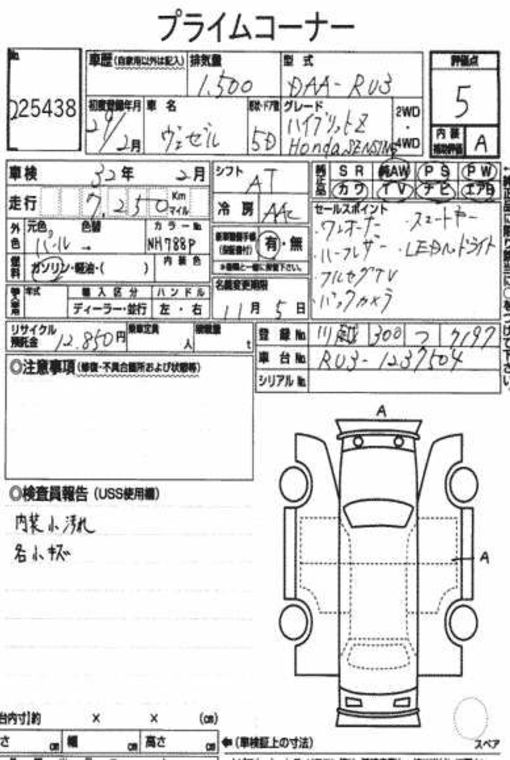 プライムコーナー
No.
025438
車歴 (自家用以外は記入) 排気量 1.500 型式 DAA-RU3
評価点 5
内装 補助評価 A
初度登録年月 29/2月 車名 ヴェゼル 形状・ドア数 5D グレード ハイブリッドZ Honda SENSING 2WD・4WD
車検 32年 2月 シフト AT
走行 7,250 Km マイル 冷房 AAC
純正品 SR 純AW PS PW
カワ TV ナビ エアB
外色 元色 パール → 色替 カラーNo. NH788P
新車整備手帳 (保証書付) 有・無
※書類と一緒に保管下さい。
燃料 ガソリン・軽油・( ) 内装色
セールスポイント
・ワンオーナー ・スマートキー
・ハーフレザー ・LEDヘッドライト
・フルセグTV
・バックカメラ
輸入車 年式 輸入区分 ディーラー・並行 ハンドル 左・右
名義変更期限 11月 5日
リサイクル預託金 12.850円 乗車定員 人 積載量 t
登録No. 川越 300 つ 7197
車台No. RU3-1237504
シリアルNo.
◎注意事項 (修復・不具合箇所および状態等)
◎検査員報告 (USS使用欄)
内装小汚れ
各小キズ
A
A
台内寸)約 × × (cm)
さ cm 幅 cm 高さ cm ←(車検証上の寸法)
スペア